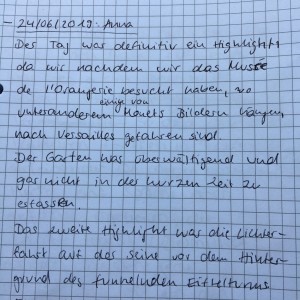 - 24/06/2019: Anna
Der Tag war definitiv ein Highlight,
da wir nachdem wir das Musée
de l'Orangerie besucht haben, wo
unteranderem einige von Monets Bildern hängen,
nach Versailles gefahren sind.
Der Garten war überwältigend und
gar nicht in der kurzen Zeit zu
erfassen.
Das zweite Highlight war die Lichter-
fahrt auf der Seine vor dem Hinter-
grund des funkelnden Eiffelturms